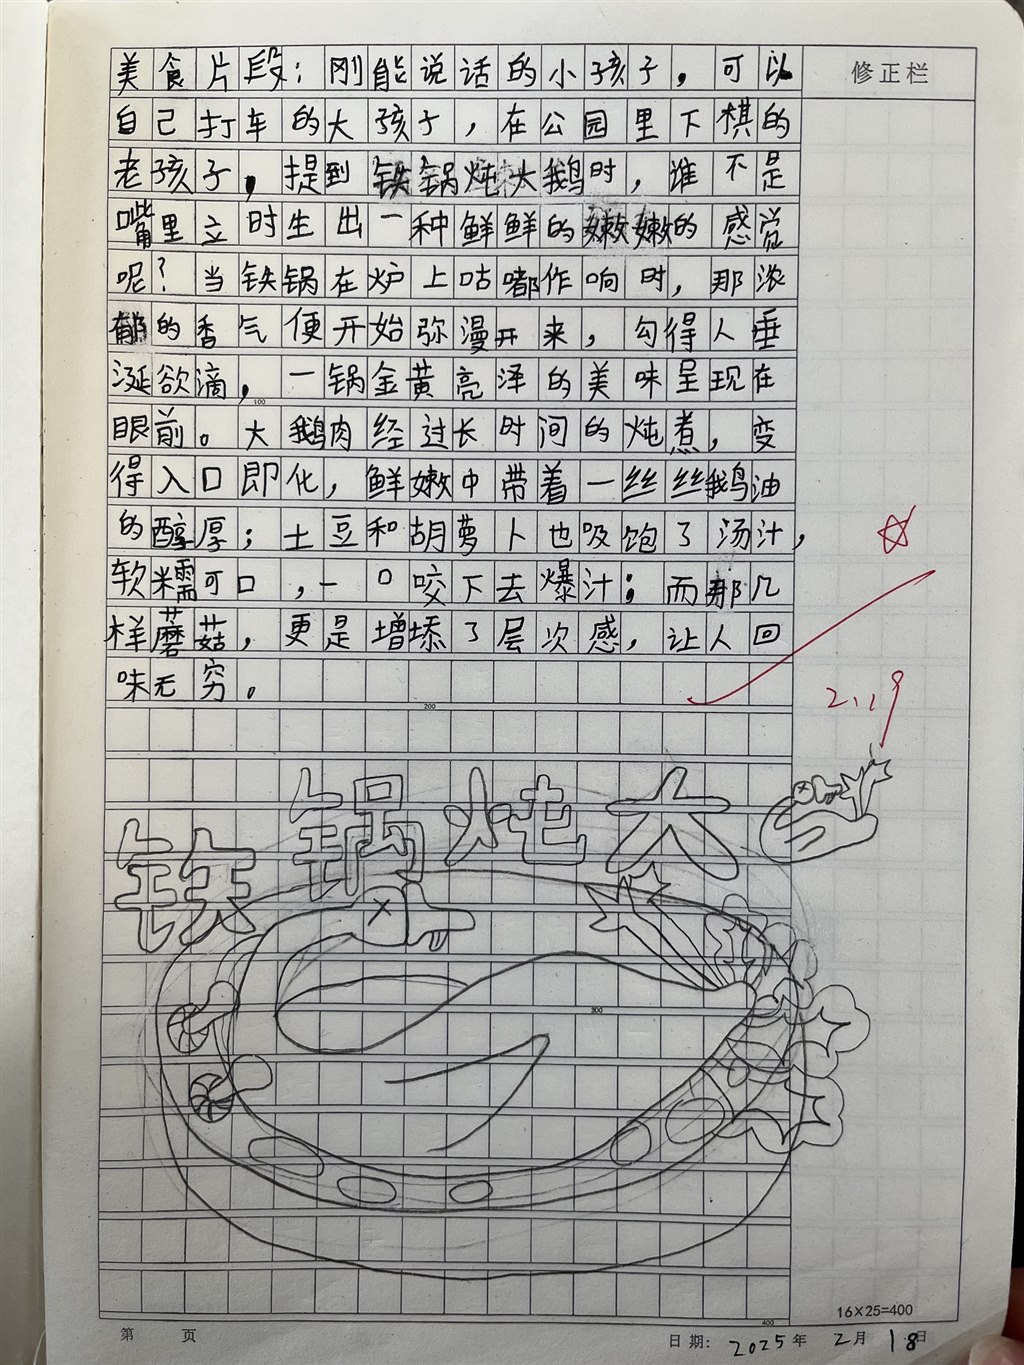 美食片段：刚能说话的小孩子，可以
修正栏
自己打车的大孩子，在公园里下棋的
老孩子，提到铁锅炖大鹅时，谁不是
嘴里立时生出一种鲜鲜的嫩嫩的感觉
呢？当铁锅在炉上咕嘟作响时，那浓
郁的香气便开始弥漫开来，勾得人垂
涎欲滴，一锅金黄亮泽的美味呈现在
100
眼前。大鹅肉经过长时间的炖煮，变
得入口即化，鲜嫩中带着一丝丝鹅油
的醇厚；土豆和胡萝卜也吸饱了汤汁，
软糯可口，一口咬下去爆汁；而那几
样蘑菇，更是增添了层次感，让人回
味无穷。
200
2.19
铁锅炖大
300
16×25=400
400
第 页
日期: 2025年 2月 18日